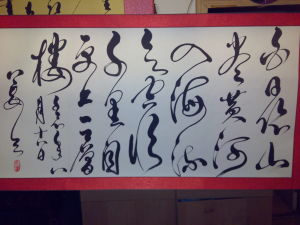 白日依山
尽黄河
入海流
欲穷
千里目
更上一層
樓
月十六日